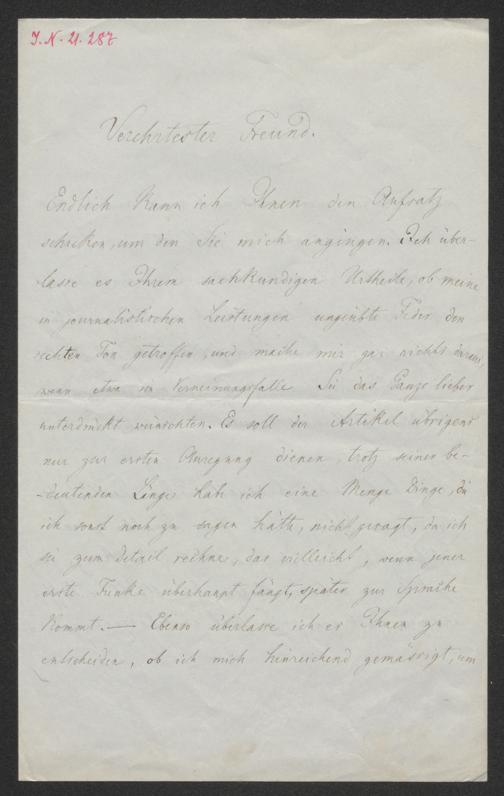 I. N. 21.287
Verehrtester Freund.
Endlich kann ich Ihnen den Aufsatz
schicken, um den Sie mich angingen. Ich über-
lasse es Ihrem sachkundigen Urtheile, ob meine
in journalistischen Leistungen ungeübte Feder den
rechten Ton getroffen, und mache mir gar nichts daraus,
wenn etwa im Verneinungsfalle Sie das Ganze lieber
unterdrückt wünschten. Es soll der Artikel übrigens
nur zur ersten Anregung dienen, trotz seiner be-
-deutenden Länge habe ich eine Menge Dinge, die
ich sonst noch zu sagen hätte, nicht gesagt, da ich
sie zum Detail rechne, das vielleicht, wenn jener
erste Funke überhaupt fängt, später zur Sprache
kommt. — Ebenso überlasse ich es Ihnen zu
entscheiden, ob ich mich hinreichend gemässigt, um